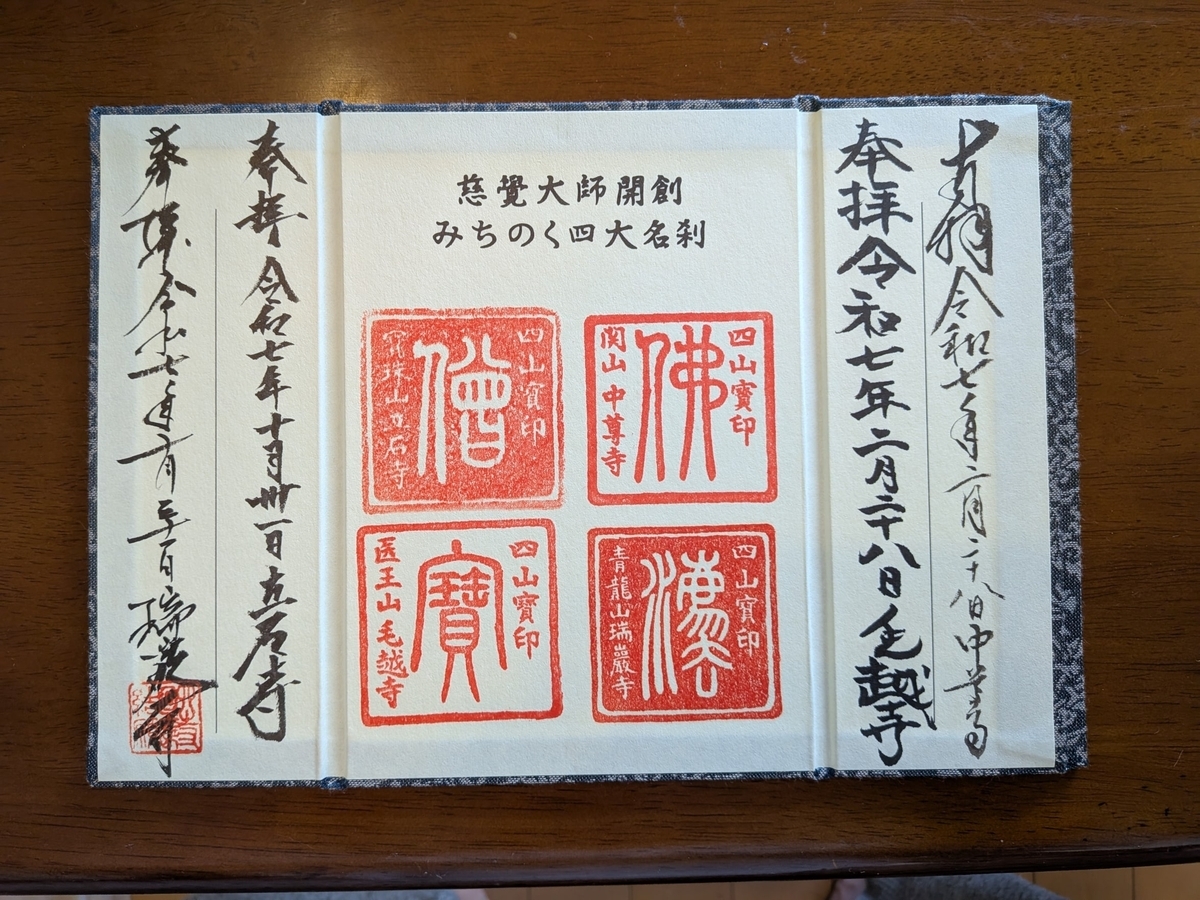 奉拝 令和七年二月二十八日 中尊寺
奉拝 令和七年二月二十八日 毛越寺
慈覺大師開創
みちのく四大名刹
四山寶印
佛
関山 中尊寺
四山寶印
僧
寳珠山立石寺
四山寶印
灋
青龍山瑞巖寺
四山寶印
寶
医王山毛越寺
奉拝 令和七年十月卅一日 立石寺
奉拝 令和七年 瑞巌寺